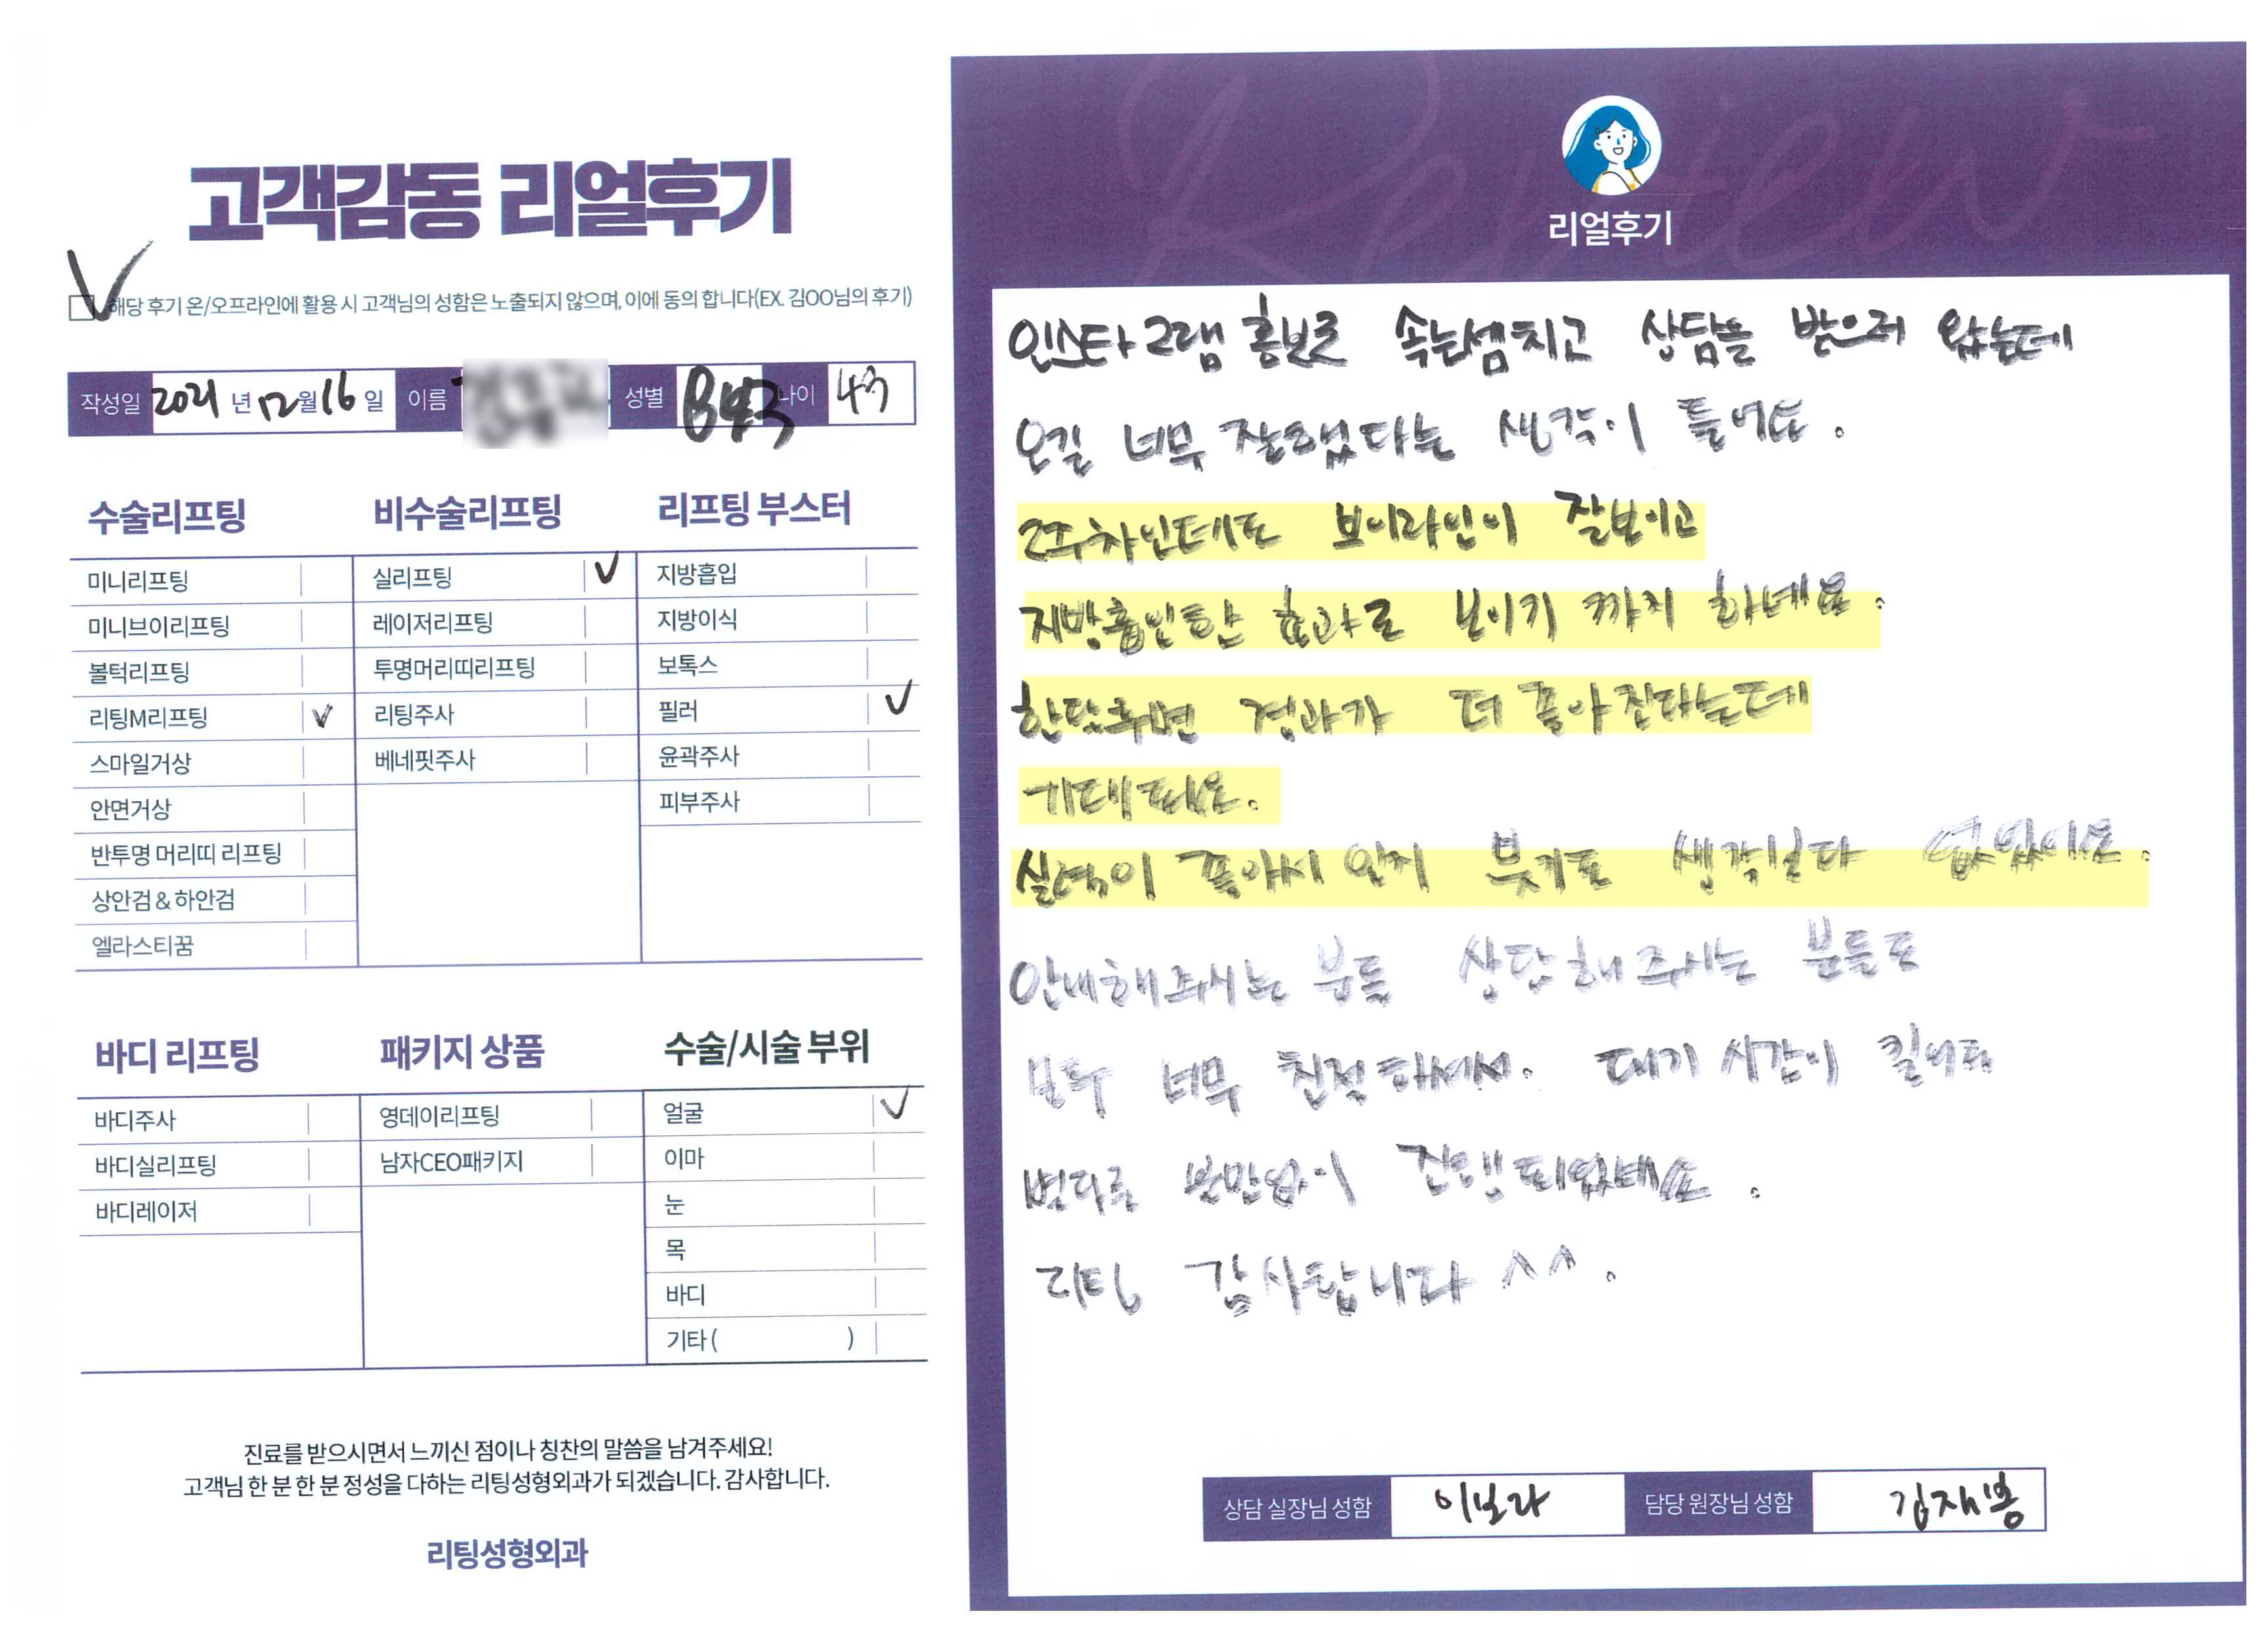 고객감동 리얼후기
해당 후기 온/오프라인에 활용 시 고객님의 성함은 노출되지 않으며, 이에 동의 합니다(EX. 김OO님의 후기)
작성일 2021 년 12월 16 일 이름 성별 나이 43
수술리프팅
미니리프팅
미니브이리프팅
볼턱리프팅
리팅M리프팅 ✓
스마일거상
안면거상
반투명 머리띠 리프팅
상안검 & 하안검
엘라스티꿈
비수술리프팅
실리프팅 ✓
레이저리프팅
투명머리띠리프팅
리팅주사
베네핏주사
리프팅 부스터
지방흡입
지방이식
보톡스
필러 ✓
윤곽주사
피부주사
바디 리프팅
바디주사
바디실리프팅
바디레이저
패키지 상품
영데이리프팅
남자CEO패키지
수술/시술 부위
얼굴 ✓
이마
눈
목
바디
기타 ( )
진료를 받으시면서 느끼신 점이나 칭찬의 말씀을 남겨주세요!
고객님 한 분 한 분 정성을 다하는 리팅성형외과가 되겠습니다. 감사합니다.
리팅성형외과
Review
리얼후기
인스타그램 홍보로 속는셈치고 상담을 받으러 왔는데
오길 너무 잘했다는 생각이 들어요.
2주차인데도 브이라인이 잘보이고
지방흡입한 효과로 보이기 까지 하네요.
한달후면 결과가 더 좋아진다는데
기대돼요.
실력이 좋아서 인지 붓기도 생각보다 없었어요.
안내해주시는 분들 상담해주시는 분들도
모두 너무 친절하셔서. 대기 시간이 길어도
별다른 불만없이 진행되었네요.
리팅 감사합니다 ^^.
상담 실장님 성함 이보라 담당 원장님 성함 김재봉